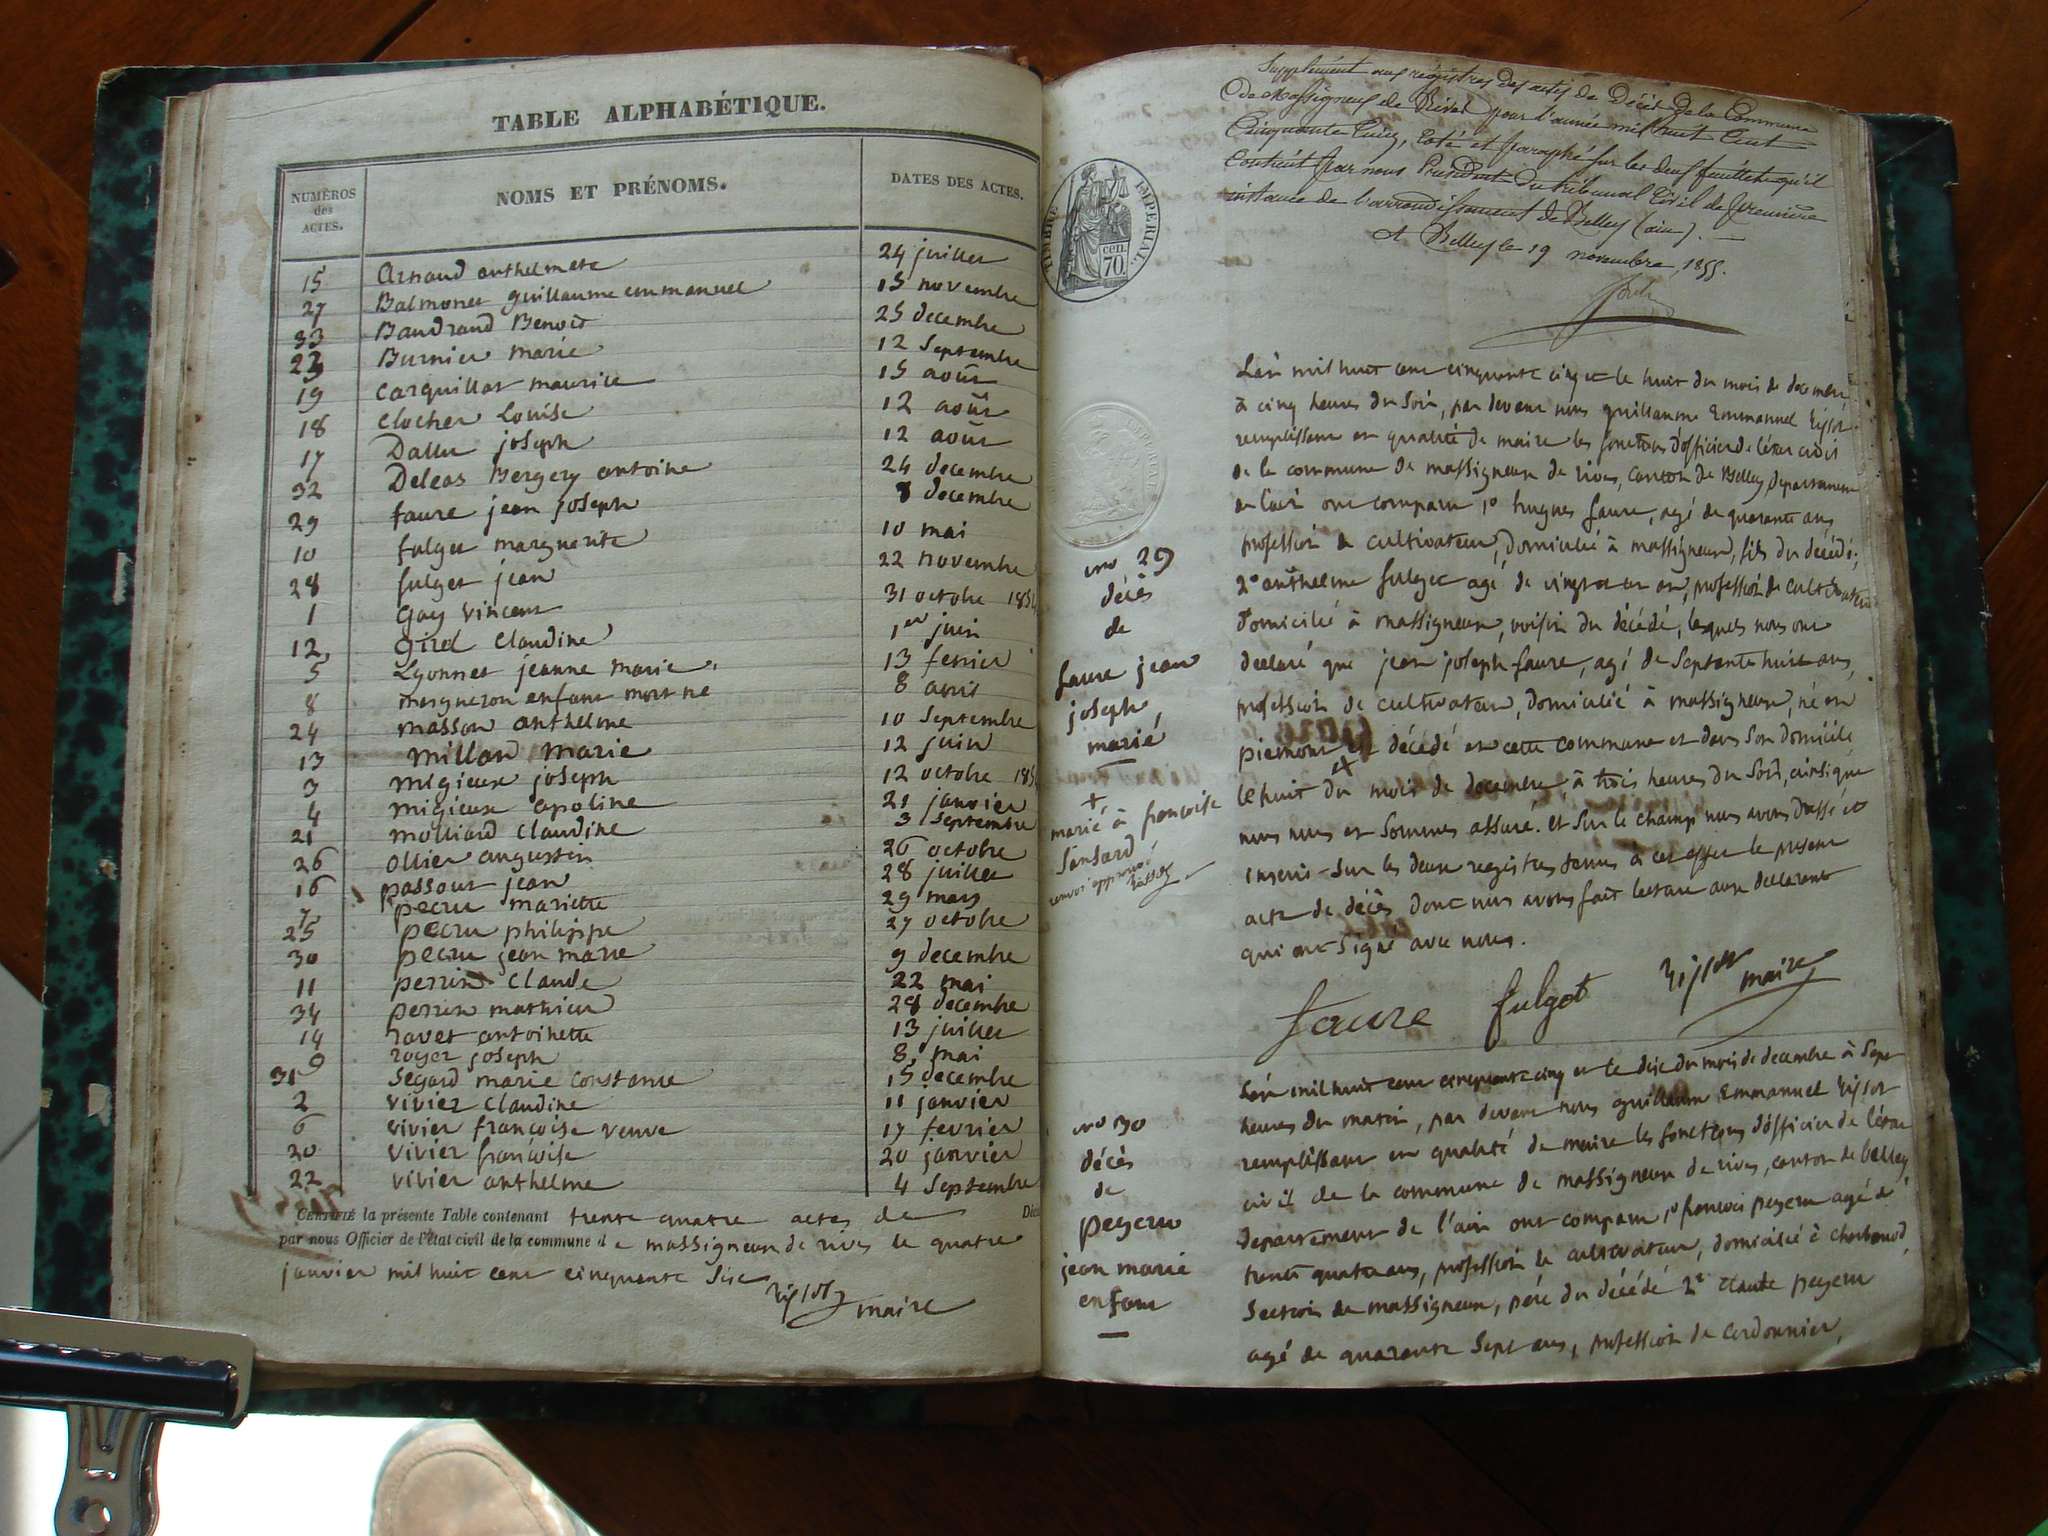 TABLE ALPHABÉTIQUE.
NUMÉROS des ACTES. NOMS ET PRÉNOMS. DATES DES ACTES.
15 Arnaud anthelmete 24 juillet
27 Balmonet guillaume emmanuel 15 novembre
33 Baudrand Benoit 25 decembre
23 Burnier marie 12 Septembre
19 Carquillat maurice 15 août
18 Clocher Louise 12 août
17 Dallu joseph 12 août
32 Deleas Bergery antoine 24 decembre
29 faure jean joseph 8 decembre
10 fulget marguerite 10 mai
28 fulget jean 22 novembre
1 Gay vincent 31 octobre 1854
12 Girel Claudine 1er juin
5 Lyonnet jeanne marie 13 fevrier
8 enfant mort né 8 avril
24 masson anthelme 10 Septembre
13 Millan Marie 12 juin
3 migieux joseph 12 octobre 185
4 migieux apoline 21 janvier
21 molliard Claudine 3 Septembre
26 ollier augustin 26 octobre
16 passout jean 28 juillet
7 pecru mariette 29 mars
25 pecru philippe 27 octobre
30 pecru jean marie 9 decembre
11 perrin Claude 22 mai
34 perrin mathieu 28 decembre
14 ravet antoinette 13 juillet
9 roger joseph 8 mai
31 Segard marie constance 15 decembre
2 vivier Claudine 11 janvier
6 vivier françoise veuve 17 fevrier
20 vivier françoise 20 janvier
22 vivier anthelme 4 Septembre
CERTIFIÉ la présente Table contenant trente quatre actes de Déc
par nous Officier de l'état civil de la commune de massigneux de rives le quatre
janvier mil huit cent cinquante six
maire
TIMBRE IMPERIAL.
cen. 70.
Supplément aux régistres des actes de Décès de la Commune
de Massigneux de Rives pour l'année mil huit Cent
Cinquante Cinq, Coté et paraphé sur les deux feuillets qu'il
Contient par nous Président du tribunal Civil de première
instance de l'arrondissement de Belley (ain).
A Belley le 19 novembre 1855.
no 29
décès
de
faure jean
joseph
marié
+
marié à françoise
Sansard
renvoi approuvé
L'an mil huit cent cinquante cinq et le huit du mois de decembre
à cinq heures du Soir, par devant nous guillaume Emmanuel
remplissant en qualité de maire les fonctions d'officier de l'état civil
de la commune de massigneux de rives, canton de Belley, Departement
de l'ain ont comparu 1º hugues faure, agé de quarante ans
profession de cultivateur, domicilié à massigneux, fils du décédé;
2º anthelme fulget agé de vingt et un an, profession de cultivateur
domicilié à massigneux, voisin du décédé, lesquels nous ont
declaré que jean joseph faure, agé de Septante huit ans,
profession de cultivateur, domicilié à massigneux, né en
piemont est décédé en cette commune et dans Son domicile
le huit du mois de decembre, à trois heures du Soir, ainsi que
nous nous en Sommes assuré. et Sur le champ nous avons dressé et
inscrit Sur les deux registres tenus à cet effet le present
acte de décès dont nous avons fait lecture aux declarants
qui ont Signé avec nous.
faure fulget maire
no 30
décès
de
pegeru
jean marie
enfant
L'an mil huit cent cinquante cinq et le dix du mois de decembre à Sept
heures du matin, par devant nous guillaume Emmanuel
remplissant en qualité de maire les fonctions d'officier de l'état
civil de la commune de massigneux de rives, canton de belley
departement de l'ain ont comparu 1º francois pegeru agé de
trente quatre ans, profession de cultivateur, domicilié à charbonod
Section de massigneux, pére du décédé 2º Claude pegeru
agé de quarante Sept ans, profession de cordonnier,